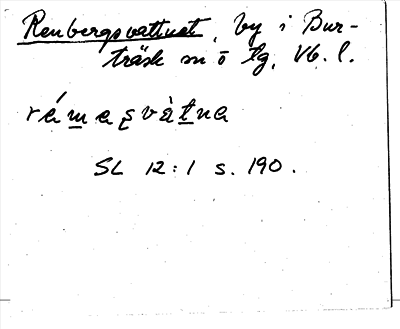 Renbergsvattnet, by i Bur-
träsk sn ö tg, Vb. l.
rémasvàtna
SL 12:1 s. 190.